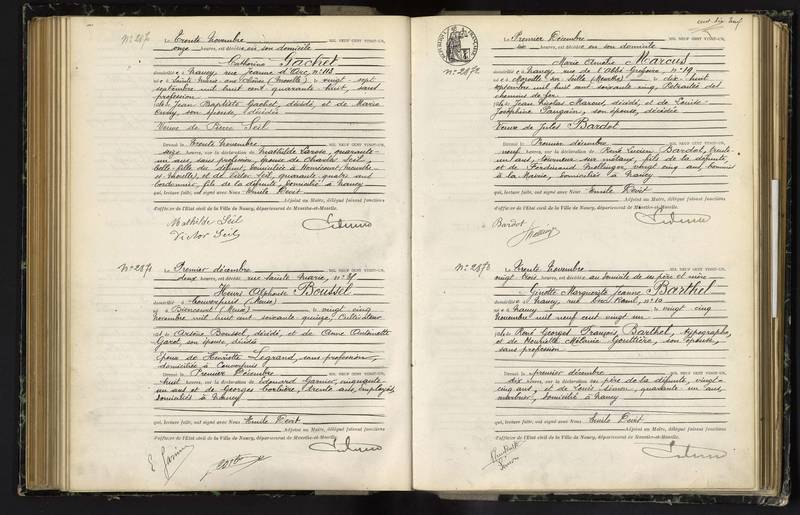 N° 2870
Le Trente Novembre MIL NEUF CENT VINGT-UN,
onze heures, est décédée en son domicile
Catherine Gachet
domiciliée à Nancy, rue Jeanne d'Arc, n° 118
née à Sainte Marie aux Chênes (Moselle) le vingt sept
septembre mil huit cent quarante huit, sans
profession
fille de Jean Baptiste Gachet, décédé, et de Marie
son épouse, décédée
Veuve de Pierre Seil
Dressé le Trente Novembre MIL NEUF CENT VINGT-UN,
seize heures, sur la déclaration de Mathilde Larose, quarante
un ans, sans profession, épouse de Charles Seil,
belle-fille du défunt, domiciliée à Homécourt (Meurthe
et Moselle), et de Victor Seil, quarante quatre ans
Cordonnier, fils de la défunte, domicilié à Nancy
qui, lecture faite, ont signé avec Nous Emile Devit
Adjoint au Maire, délégué faisant fonctions
d'officier de l'Etat civil de la Ville de Nancy, département de Meurthe-et-Moselle.
Mathilde Seil
Victor Seil
N° 2871
Le Premier décembre MIL NEUF CENT VINGT-UN,
deux heures, est décédé rue Sainte Marie, n°
Henri Alphonse Boussel
domicilié à Couvonpuis (Meuse)
né à Biencourt (Meuse) le vingt cinq
novembre mil huit cent soixante quinze, Cultivateur
fils de Arsène Boussel, décédé, et de Anne Antoinette
Garot, son épouse, décédée
Epoux de Henriette Legrand, sans profession,
domiciliée à Couvonpuis
Dressé le Premier Décembre MIL NEUF CENT VINGT-UN,
huit heures, sur la déclaration de Edouard Garnier, cinquante
un ans et de Georges Corlière, trente ans, employés,
domiciliés à Nancy
qui, lecture faite, ont signé avec Nous Emile Devit
Adjoint au Maire, délégué faisant fonctions
d'officier de l'Etat civil de la Ville de Nancy, département de Meurthe-et-Moselle.
E. Garnier
cent dix neuf
N° 2872
Le Premier Décembre MIL NEUF CENT VINGT-UN,
six heures, est décédée en son domicile
Marie Amélie Marcus
domiciliée à Nancy, rue de l'Abbé Grégoire, n° 19
née à Moyenvic le dix huit
septembre mil huit cent soixante cinq, Retraitée des
chemins de fer
fille de Jean Nicolas Marcus, décédé, et de Louise
Joséphine son épouse, décédée
Veuve de Jules Bardot
Dressé le Premier décembre MIL NEUF CENT VINGT-UN,
neuf heures, sur la déclaration de René Lucien Bardot, trente
un ans, tourneur sur métaux, fils de la défunte,
et de Ferdinand vingt cinq ans, commis
à la Mairie, domiciliés à Nancy
qui, lecture faite, ont signé avec Nous Emile Devit
Adjoint au Maire, délégué faisant fonctions
d'officier de l'Etat civil de la Ville de Nancy, département de Meurthe-et-Moselle.
Bardot
N° 2873
Le Trente Novembre MIL NEUF CENT VINGT-UN,
vingt trois heures, est décédée au domicile de ses père et mère
Ginette Marguerite Jeanne Barthel
domiciliée à Nancy, rue n° 10
née à Nancy le vingt cinq
novembre mil neuf cent vingt un
fille de René Georges François Barthel, typographe,
et de Henriette Mélanie Gouttière, son épouse,
sans profession
Dressé le premier décembre MIL NEUF CENT VINGT-UN,
dix heures, sur la déclaration des père de la défunte, vingt
cinq ans, et de Louis Simon, quarante un ans,
domicilié à Nancy
qui, lecture faite, ont signé avec Nous Emile Devit
Adjoint au Maire, délégué faisant fonctions
d'officier de l'Etat civil de la Ville de Nancy, département de Meurthe-et-Moselle.
Simon